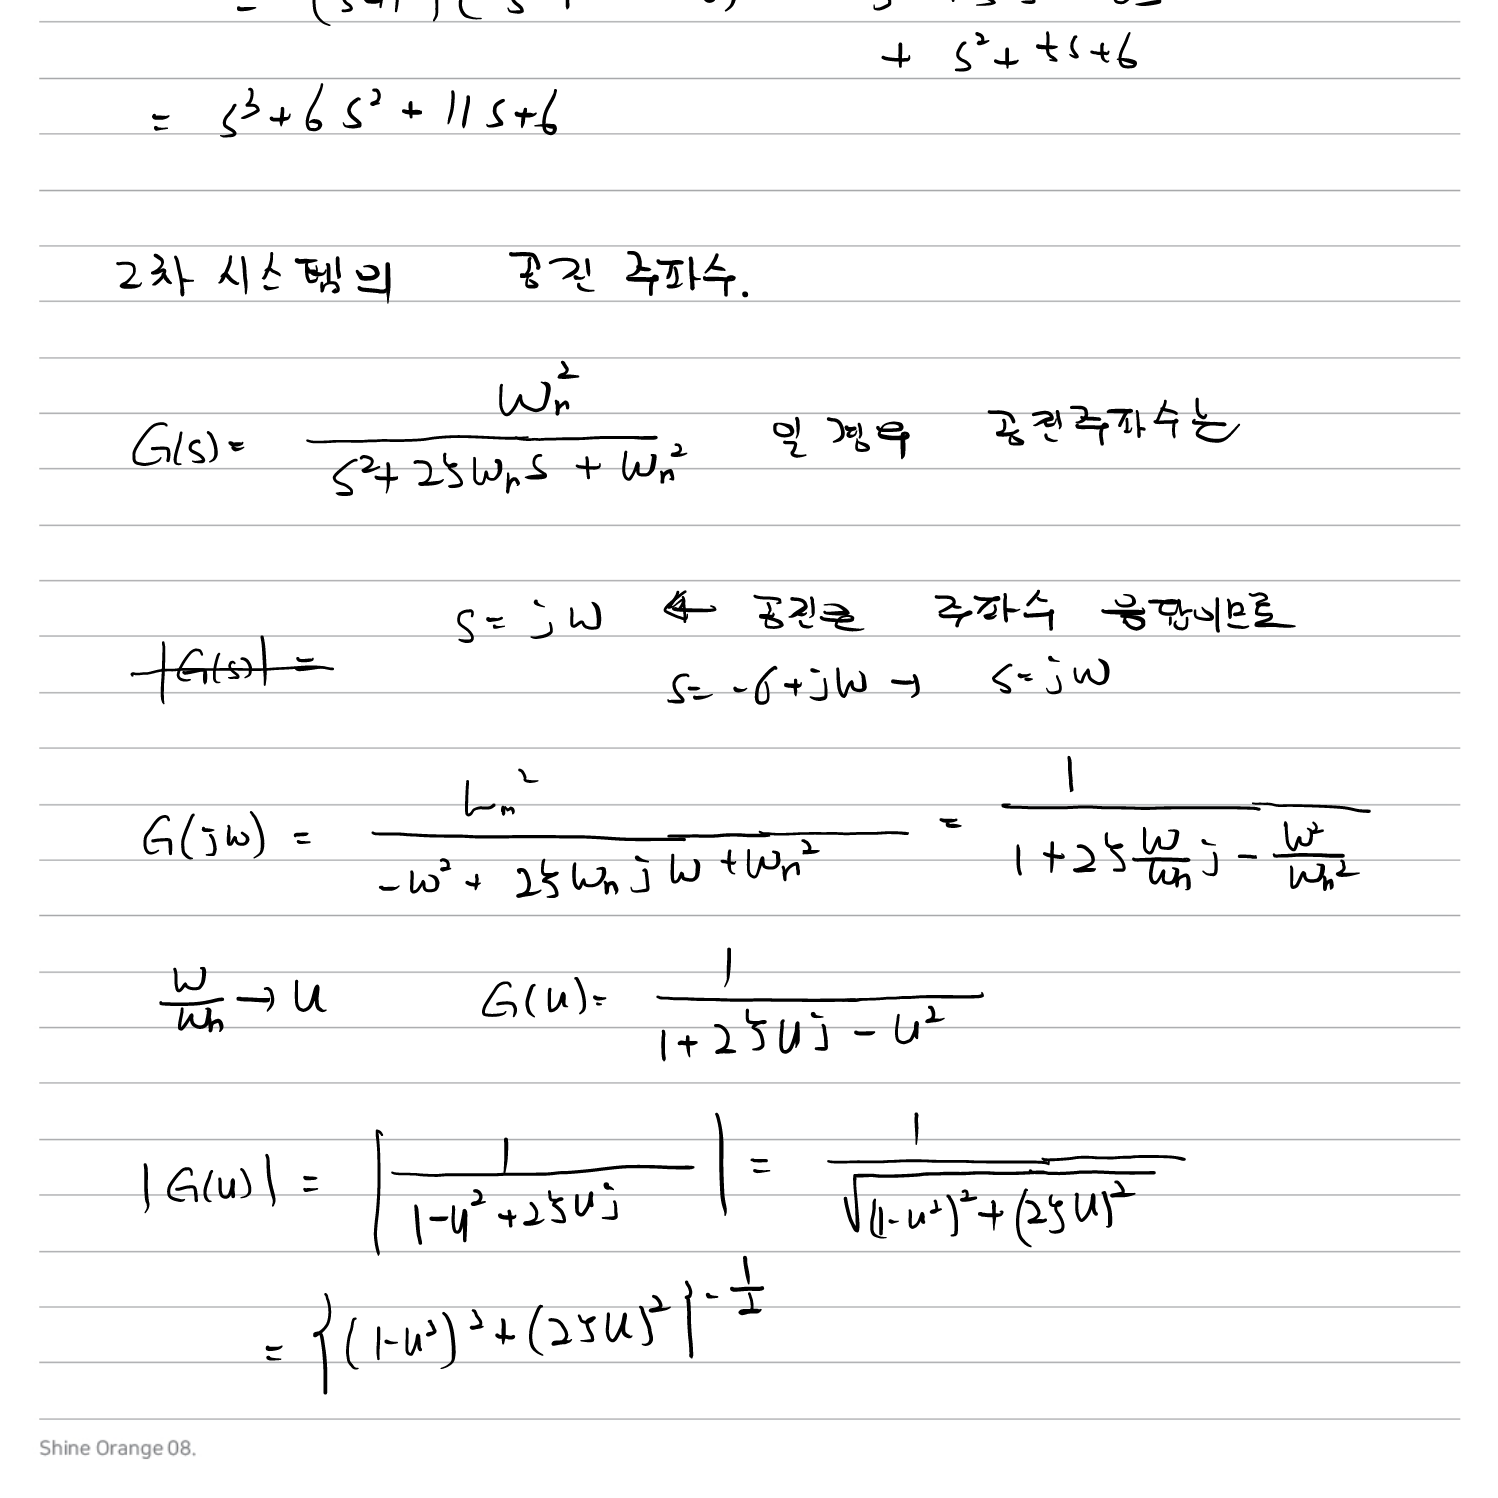 + s² + 5s+6
= s³+6s² + 11s+6
2차 시스템의 공진 주파수.
G(s)= ωn² / (s²+2ζωns + ωn²) 일 경우 공진주파수는
s=jω ← 공진은 주파수 응답이므로
|G(s)| =
s= -σ+jω → s=jω
G(jω) = ωn² / (-ω²+ 2ζωnjω+ωn²) = 1 / (1+2ζ(ω/ωn)j - ω²/ωn²)
ω/ωn → u G(u)= 1 / (1+2ζuj - u²)
|G(u)| = |1 / (1-u²+2ζuj)| = 1 / √((1-u²)²+(2ζu)²)
= {(1-u²)²+(2ζu)²}^(-1/2)
Shine Orange 08.